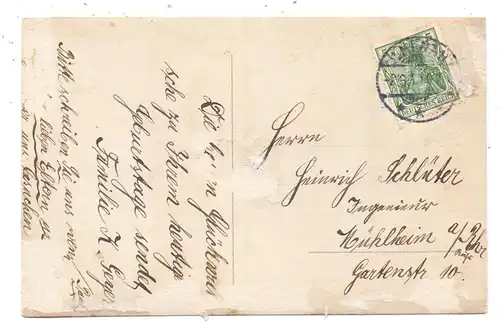 Die b n Glückwün
sche zu Ihrem heutigen
Geburtstage sendet
Familie K. Geyer
Bitte schreiben Sie uns wenn
lieben Eltern
Herrn
Heinrich Schlüter
Ingenieur
Mühlheim a/Ruhr
Gartenstr 10.
DEUTSCHES REICH
5